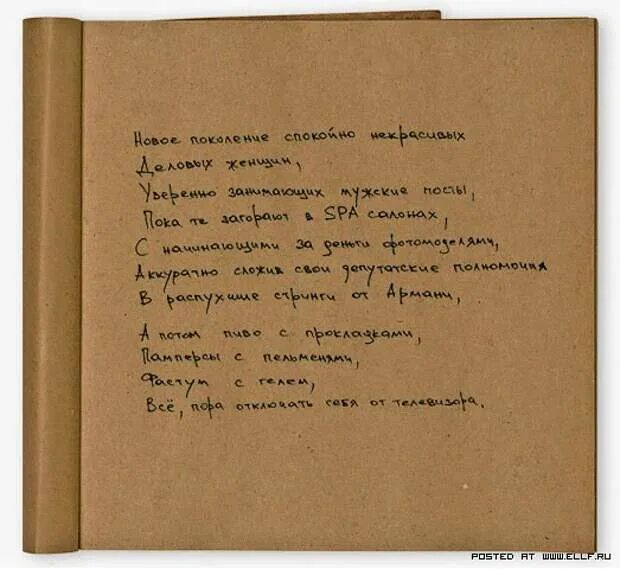 Новое поколение спокойно некрасивых
Деловых женщин,
Уверенно занимающих мужские посты,
Пока те загорают в SPA салонах,
С начинающими за деньги фотомоделями,
Аккуратно сложив свои депутатские полномочия
В распухшие стринги от Армани,
А потом пиво с прокладками,
Памперсы с пельменями,
Фастум с гелем,
Всё, пора отключать себя от телевизора.
POSTED AT WWW.ELLF.RU